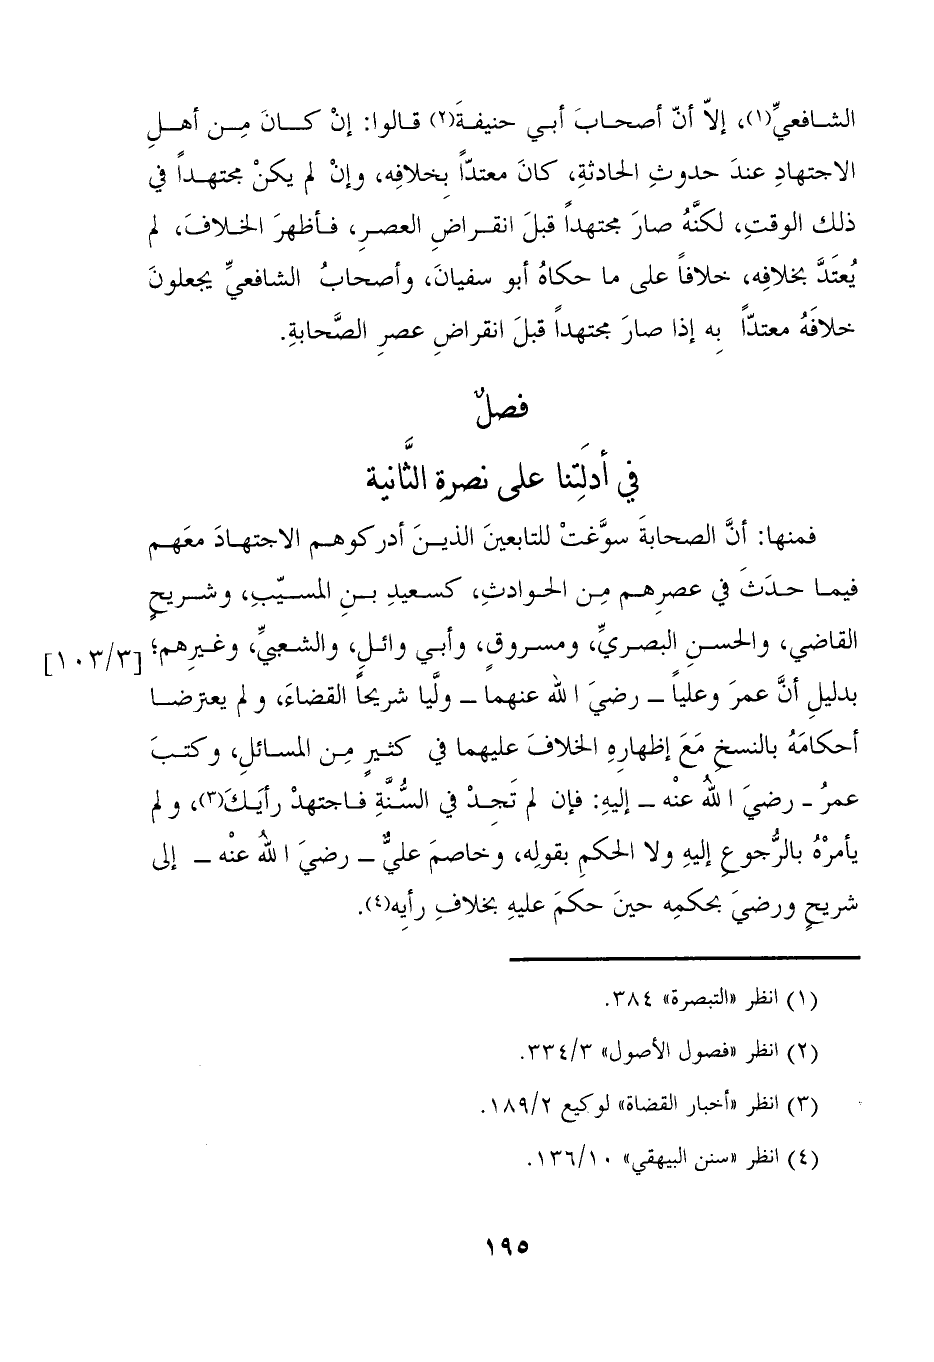 الشافعيِّ(١)، إلاّ أنّ أصحابَ أبي حنيفةَ(٢) قالوا: إنْ كانَ مِن أهلِ
الاجتهادِ عندَ حدوثِ الحادثةِ، كانَ معتدّاً بخلافِه، وإنْ لم يكنْ مجتهداً في
ذلك الوقتِ، لكنَّهُ صارَ مجتهداً قبلَ انقراضِ العصرِ، فأظهرَ الخلافَ، لم
يُعتَدَّ بخلافِه، خلافاً على ما حكاهُ أبو سفيانَ، وأصحابُ الشافعيِّ يجعلونَ
خلافَهُ معتدّاً به إذا صارَ مجتهداً قبلَ انقراضِ عصرِ الصَّحابةِ.
فصلٌ
في أدلَتِنا على نصرةِ الثَّانية
فمنها: أنَّ الصحابةَ سوَّغتْ للتابعينَ الذينَ أدركوهم الاجتهادَ معَهم
فيما حدَثَ في عصرِهم مِن الحوادثِ، كسعيدِ بنِ المسيّبِ، وشريحٍ
القاضي، والحسنِ البصريِّ، ومسروقٍ، وأبي وائلٍ، والشعبيِّ، وغيرِهم؛ [١٠٣/٣]
بدليلِ أنَّ عمرَ وعلياً ـ رضيَ الله عنهما ـ ولَّيا شريحاً القضاءَ، ولم يعترضا
أحكامَهُ بالنسخِ مَعَ إظهارِهِ الخلافَ عليهما في كثيرٍ مِن المسائلِ، وكتبَ
عمرُ ـ رضيَ اللهُ عنْه ـ إليهِ: فإن لم تَجِدْ في السُّنَّةِ فاجتهدْ رأيَكَ(٣)، ولم
يأمرْهُ بالرُّجوعِ إليهِ ولا الحكمِ بقولِه، وخاصمَ عليٌّ ـ رضيَ اللهُ عنْه ـ إلى
شريحٍ ورضيَ بحكمِه حينَ حكمَ عليهِ بخلافِ رأيِه(٤).
(١) انظر «التبصرة» ٣٨٤.
(٢) انظر «فصول الأصول» ٣٣٤/٣.
(٣) انظر «أخبار القضاة» لوكيع ١٨٩/٢.
(٤) انظر «سنن البيهقي» ١٣٦/١٠.
١٩٥